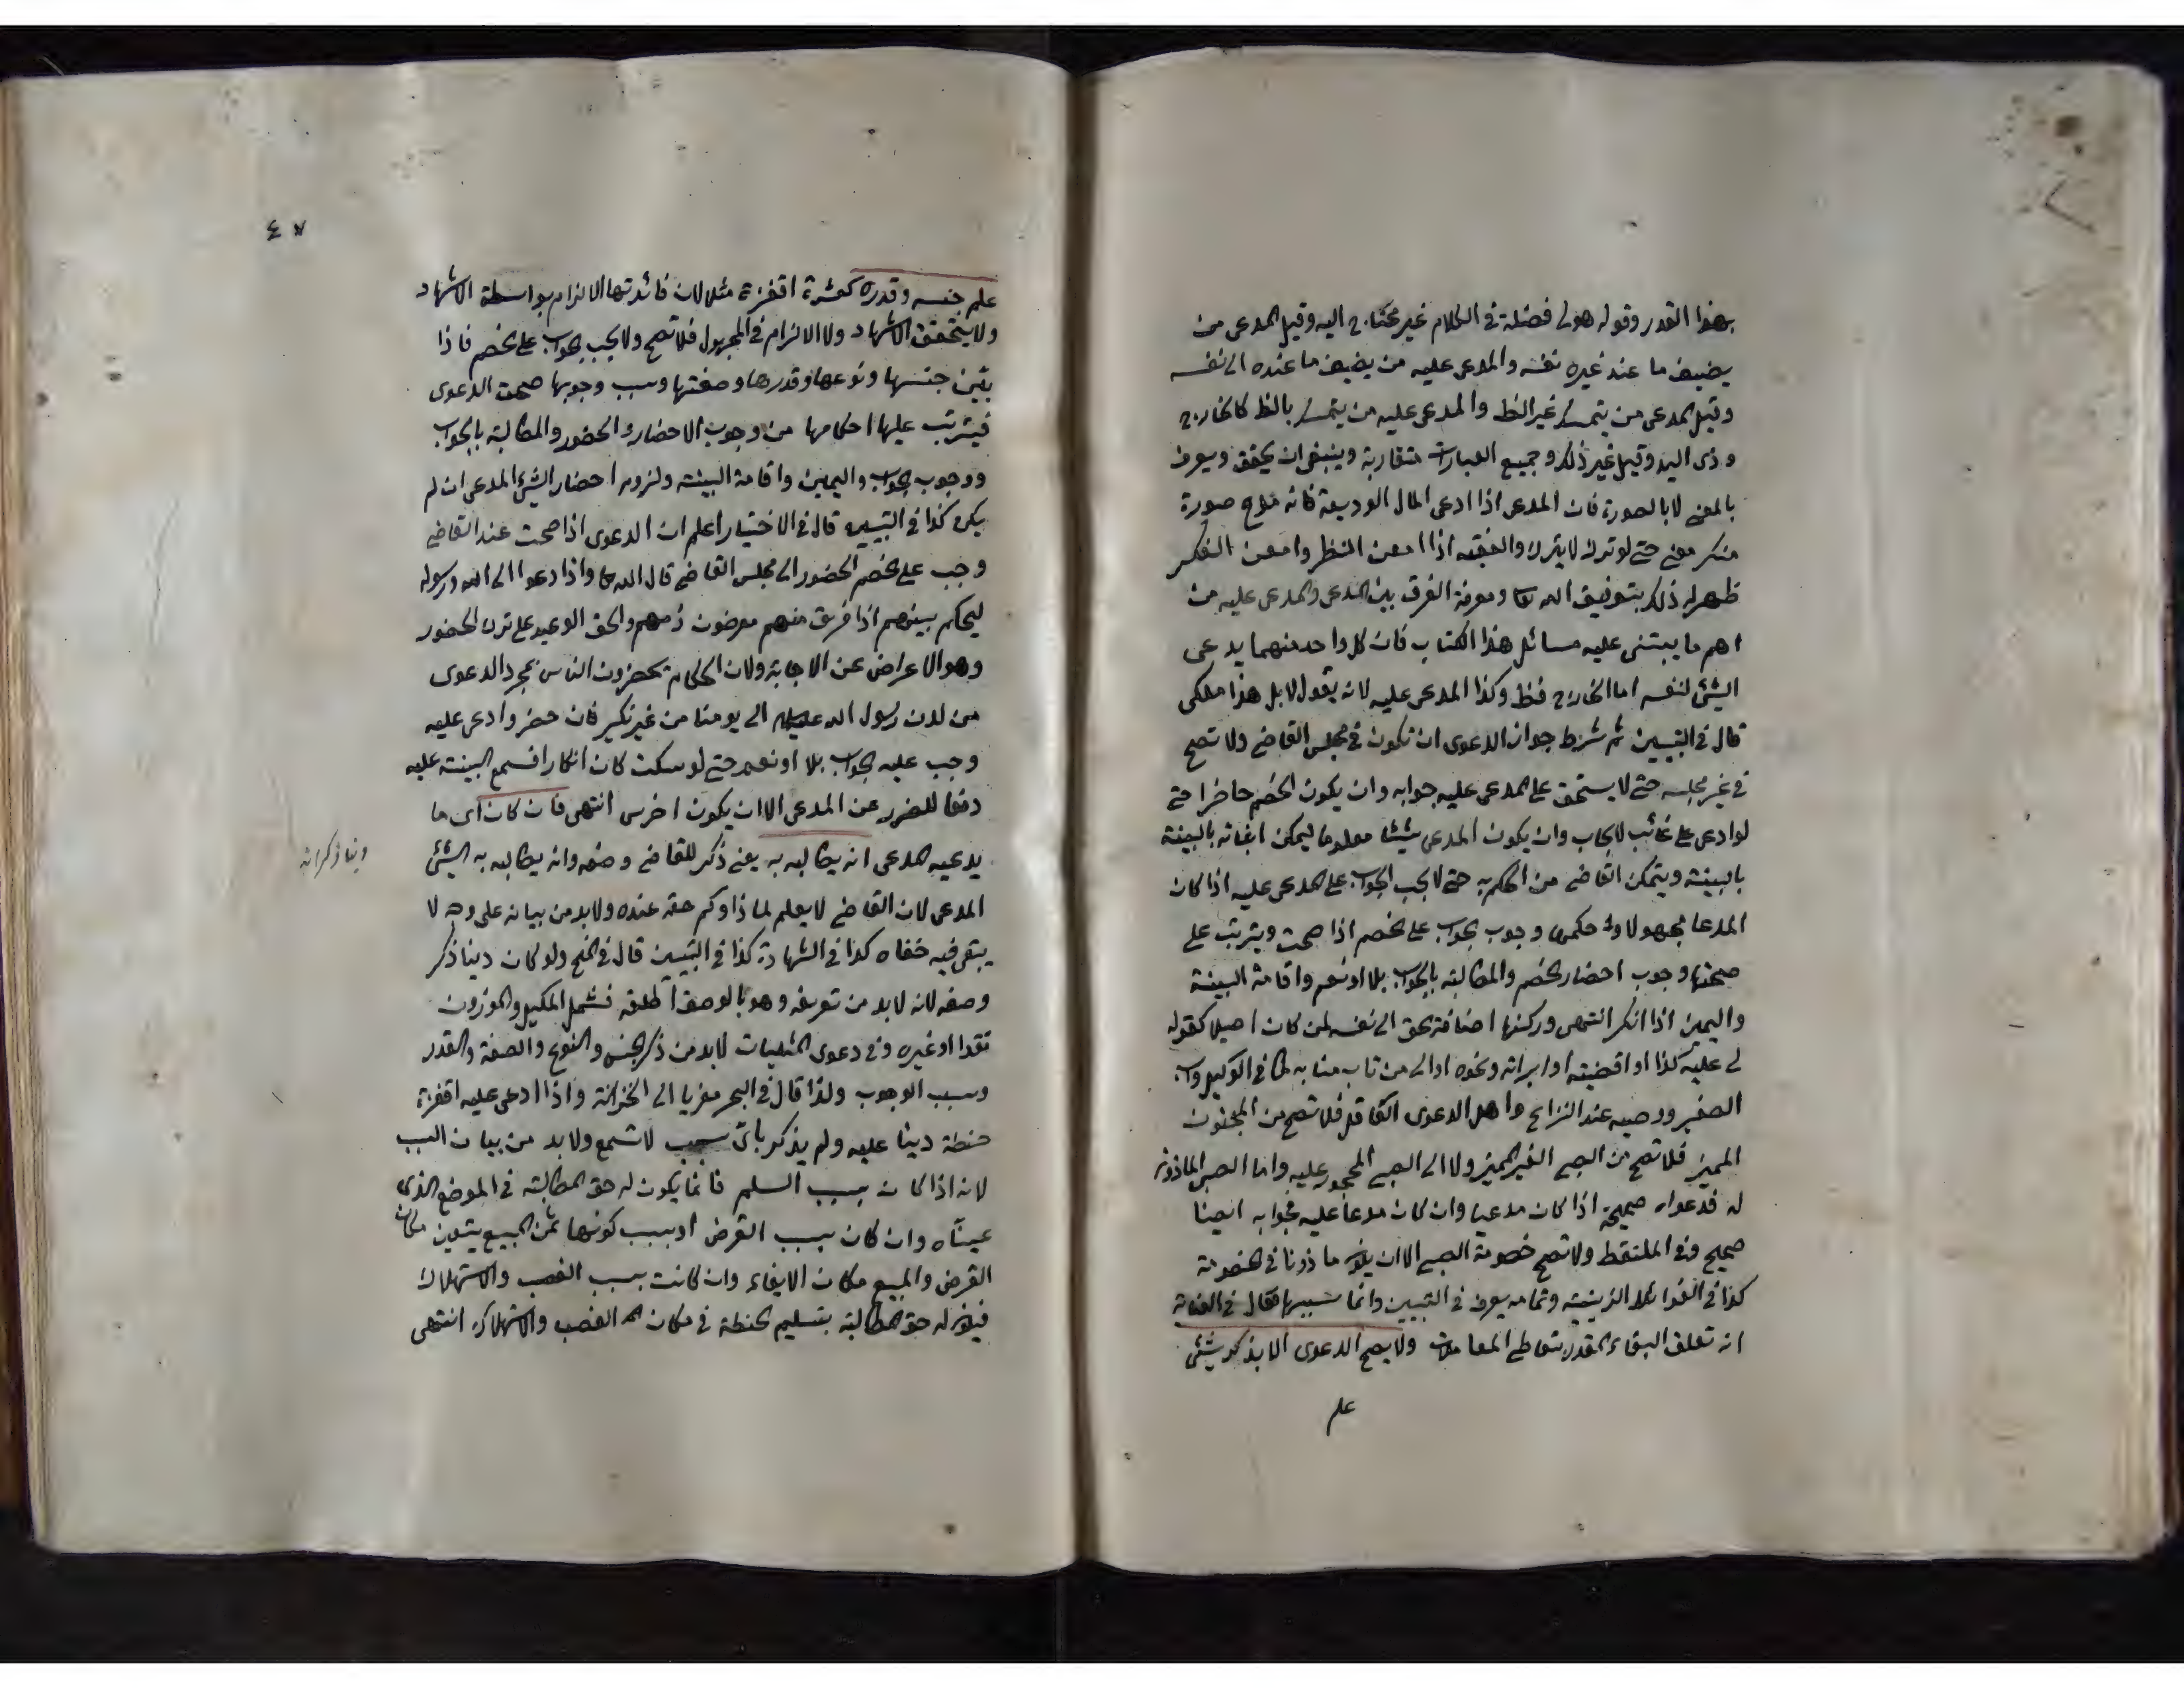 بهذا القدر وقوله هو لي فضلة في الكلام غير محتاج اليه وقيل المدعى من
يضيف ما عند غيره نفسه والمدعى عليه من يضيف ما عنده الى نفسه
وقيل المدعى من يتمسك بغير الظ والمدعى عليه من يتمسك بالظ كالخارج
وذى اليد وقيل غير ذلك وجميع العبارات متقاربة وينبغى ان يحقق ويعرف
بالمعنى لا بالصورة فان المدعى اذا ادعى المال الوديعة فانه مدع صورة
منكر معنى حتى لو ترك لا يترك والفقيه اذا امعن النظر وامعن الفكر
ظهر له ذلك بتوفيق الله تعا ومعرفة الفرق بين المدعى والمدعى عليه من
اهم ما يبتنى عليه مسائل هذا الكتاب فان كل واحد منهما يدعى
الشئ لنفسه اما الخارج فظ وكذا المدعى عليه لانه يقول لا بل هذا ملكى
قال في التبيين ثم شرط جواز الدعوى ان تكون في مجلس القاضى ولا تصح
في غير مجلسه حتى لا يستحق على المدعى عليه جوابه وان يكون الخصم حاضرا حتى
لو ادعى على غائب لا يجاب وان يكون المدعى شيئا معلوما ليمكن اثباته بالبينة
بالبينة ويتمكن القاضى من الحكم به حتى لا يجب الجواب على المدعى عليه اذا كان
المدعا مجهولا و حكمها وجوب الجواب على الخصم اذا صحت ويترتب على
صحتها وجوب احضار الخصم والمطالبة بالجواب بلا او نعم واقامة البينة
واليمين اذا انكر انتهى وركنها اضافة الحق الى نفسه لمن كان اصيلا كقوله
لى عليه كذا او اقضيته او ابرأته ونحوه او الى من ناب منابه كما في الوكيل واب
الصغير ووصيه عند النزاع واهل الدعوى العاقل فلا تصح من المجنون
المميز فلا تصح من الصبى الغير المميز ولا الى الصبى المحجور عليه واما الصبى الماذون
له فدعواه صحيحة اذا كان مدعيا وان كان مدعا عليه فجوابه ايضا
صحيح وفي الملتقط ولا تصح خصومة الصبى الا ان يكون ماذونا في الخصومة
كذا في الفوائد الزينية وتمامه يعرف في التبيين وانما سببها فقال في العناية
انه تعلق البقاء المقدر بتعاطى المعاملات ولا يصح الدعوى الا بذكر شئ
علم
٤٧
علم جنسه وقدره كعشرة اقفزة مثلا لان فائدتها الالزام بواسطة الاشهاد
ولا يتحقق الاشهاد ولا الالزام في المجهول فلا تصح ولا يجب الجواب على الخصم فاذا
بين جنسها ونوعها وقدرها وصفتها وسبب وجوبها صحت الدعوى
فيترتب عليها احكامها من وجوب الاحضار والحضور والمطالبة بالجواب
ووجوب الجواب واليمين واقامة البينة ولزوم احضار الشئ المدعى ان لم
يكن كذا في التبيين قال في الاختيار اعلم ان الدعوى اذا صحت عند القاضى
وجب على الخصم الحضور الى مجلس القاضى قال الله تعا واذا دعوا الى الله ورسوله
ليحكم بينهم اذا فريق منهم معرضون ذمهم والحق الوعيد على ترك الحضور
وهو الاعراض عن الاجابة ولان الحكام يحضرون الناس بمجرد الدعوى
من لدن رسول الله عليه السلام الى يومنا من غير نكير فان حضر وادعى عليه
وجب عليه الجواب بلا او نعم حتى لو سكت كان انكارا فسمع البينة عليه
دفعا للضرر عن المدعى الا ان يكون اخرس انتهى فان كان اى ما
يدعيه المدعى انه يطالبه به يعنى ذكر للقاضى وصفه وانه يطالبه به الشئ
دينا ذكر انه
المدعى لان القاضى لا يعلم لماذا وكم حقه عنده ولا بد من بيانه على وجه لا
يبقى فيه خفاه كذا في الشهادة كذا في التبيين قال في المنح ولو كان دينا ذكر
وصفه لانه لا بد من تعريفه وهو بالوصف اطلقه فشمل المكيل والموزون
نقدا او غيره وفي دعوى المثليات لا بد من ذكر الجنس والنوع والصفة والقدر
وسبب الوجوب ولذا قال في البحر معزيا الى الخزانة واذا ادعى عليه اقفزة
حنطة دينا عليه ولم يذكر باى سبب لا تسمع ولا بد من بيان السبب
لانه اذا كان بسبب السلم فانما يكون له حق المطالبة في الموضع الذى
عيناه وان كان بسبب القرض او بسبب كونها ثمن المبيع يتعين مكان
القرض والمبيع مكان الايفاء وان كانت بسبب الغصب والاستهلاك
فيكون له حق المطالبة بتسليم الحنطة في مكان الغصب والاستهلاك انتهى